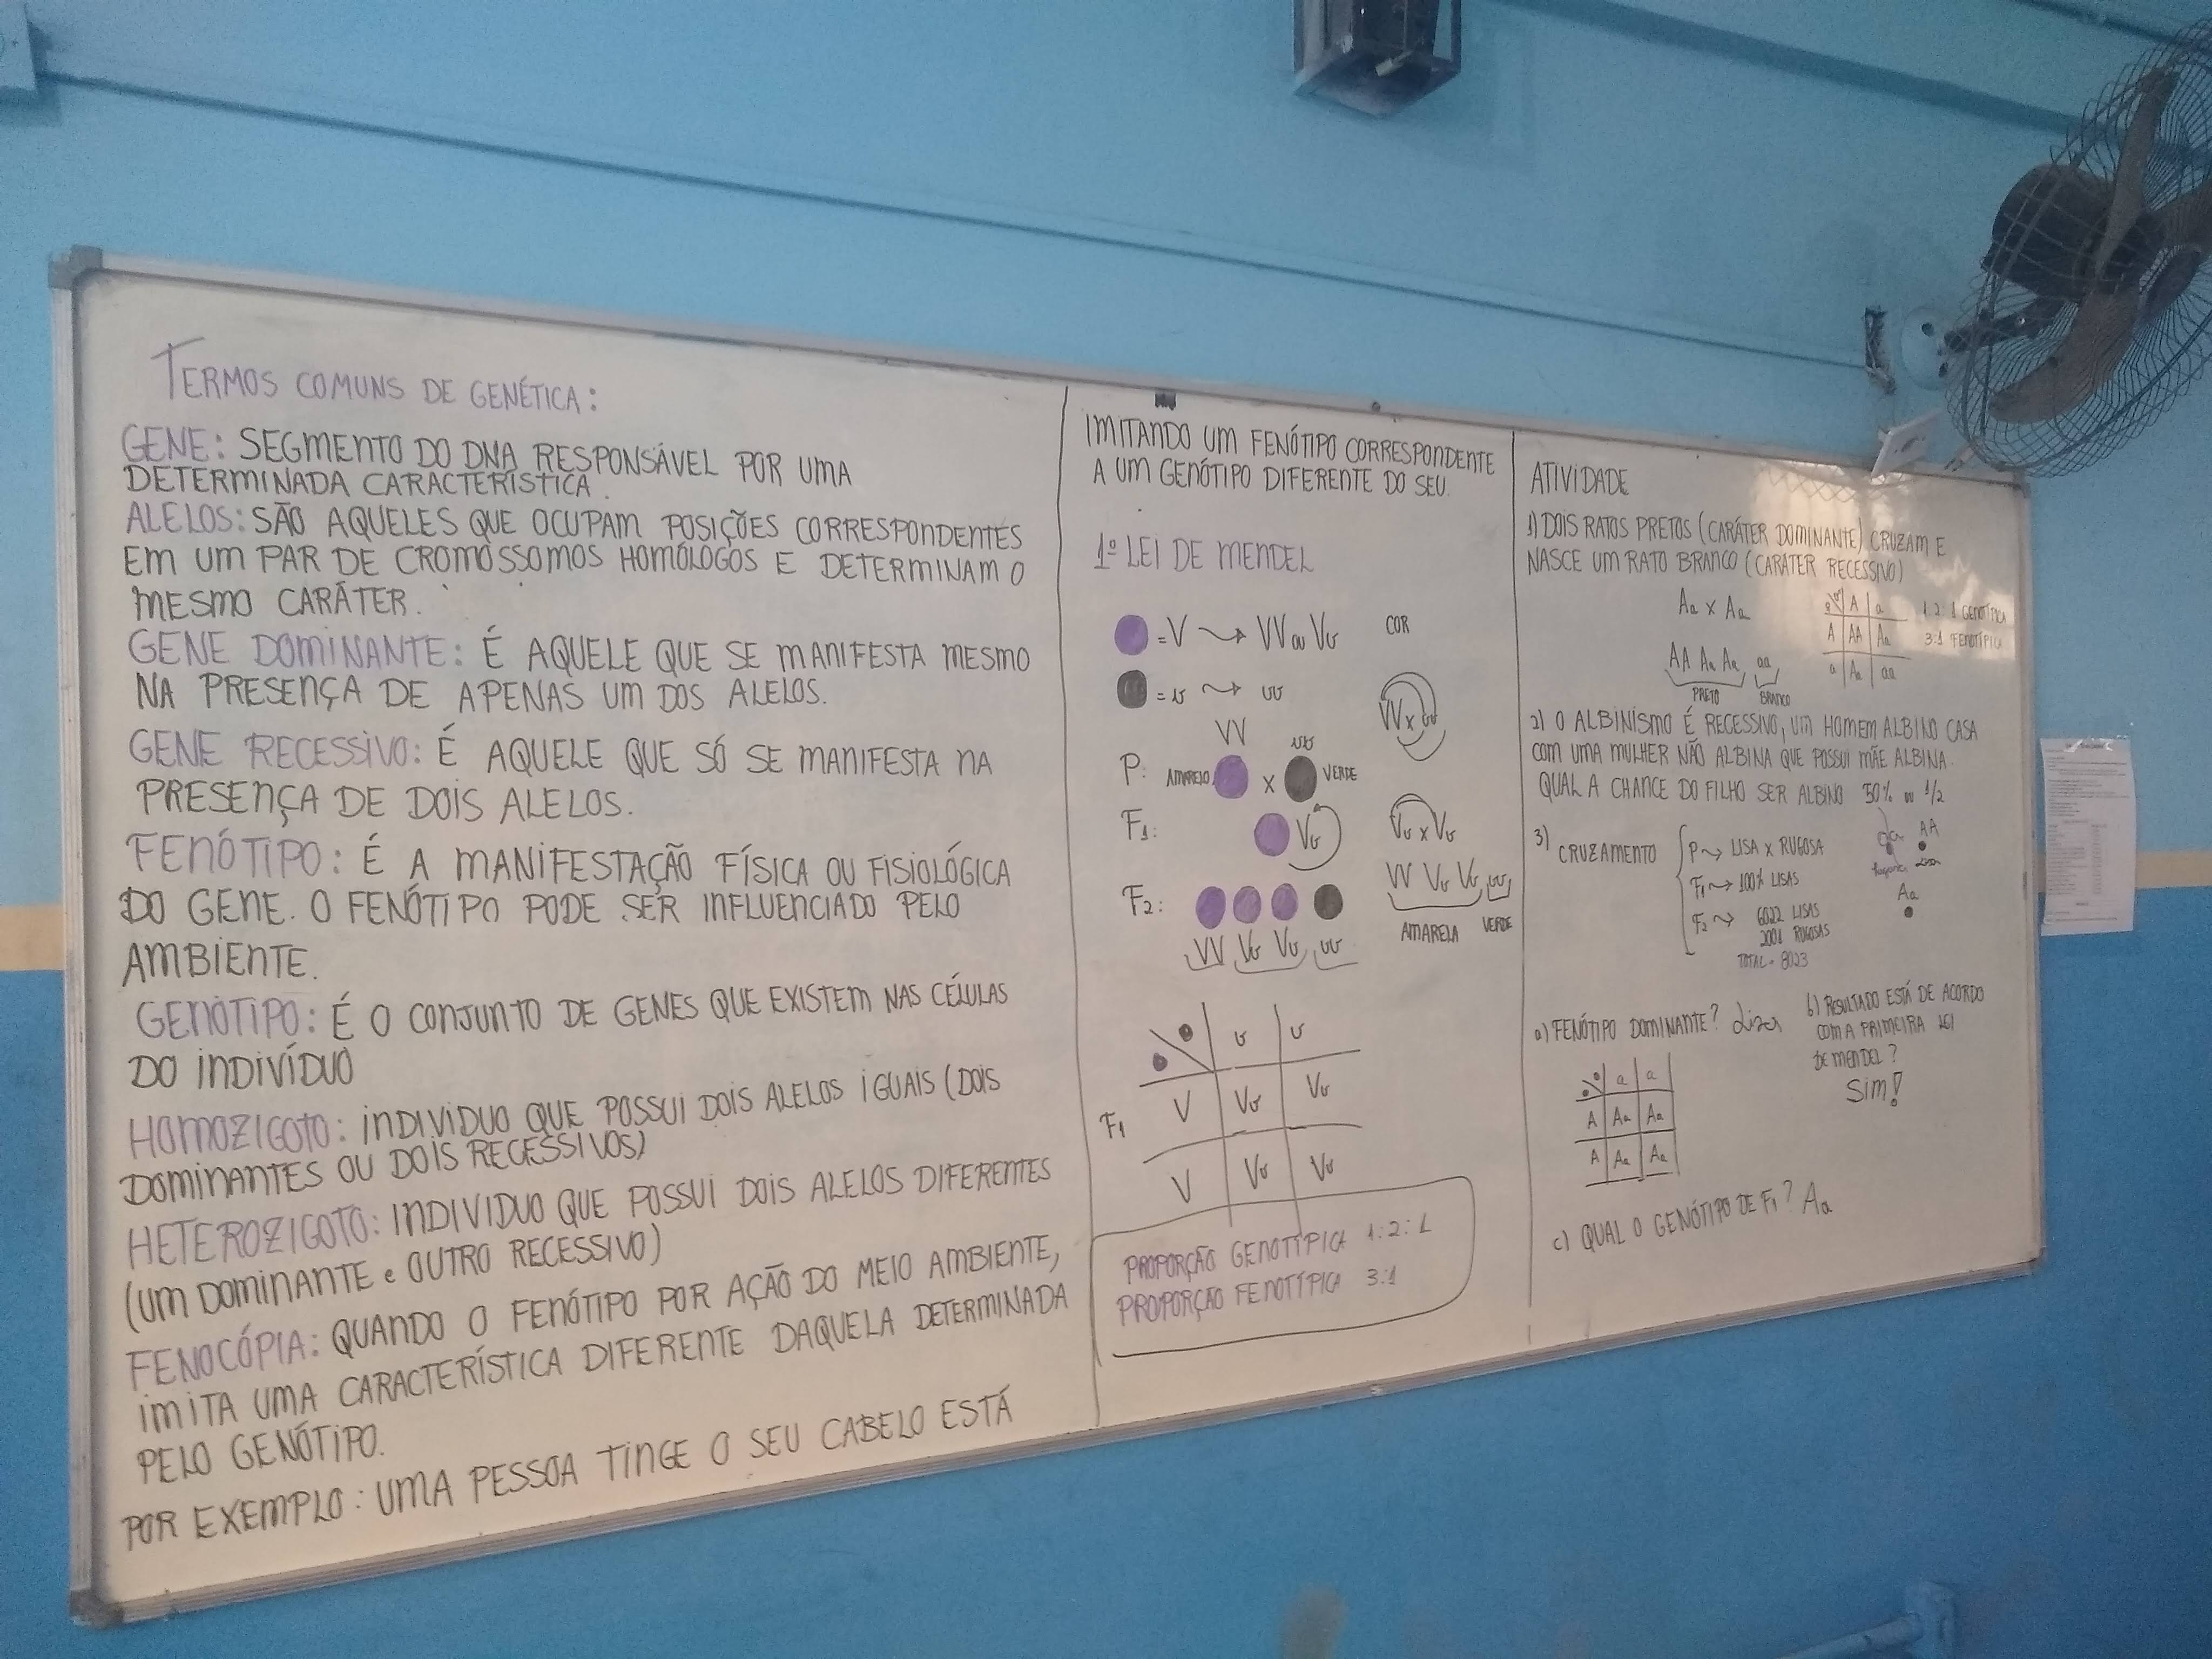 TERMOS COMUNS DE GENÉTICA:
GENE: SEGMENTO DO DNA RESPONSÁVEL POR UMA
DETERMINADA CARACTERÍSTICA.
ALELOS: SÃO AQUELES QUE OCUPAM POSIÇÕES CORRESPONDENTES
EM UM PAR DE CROMOSSOMOS HOMÓLOGOS E DETERMINAM O
MESMO CARÁTER.
GENE DOMINANTE: É AQUELE QUE SE MANIFESTA MESMO
NA PRESENÇA DE APENAS UM DOS ALELOS.
GENE RECESSIVO: É AQUELE QUE SÓ SE MANIFESTA NA
PRESENÇA DE DOIS ALELOS.
FENÓTIPO: É A MANIFESTAÇÃO FÍSICA OU FISIOLÓGICA
DO GENE. O FENÓTIPO PODE SER INFLUENCIADO PELO
AMBIENTE.
GENÓTIPO: É O CONJUNTO DE GENES QUE EXISTEM NAS CÉLULAS
DO INDIVÍDUO
HOMOZIGOTO: INDIVIDUO QUE POSSUI DOIS ALELOS IGUAIS (DOIS
DOMINANTES OU DOIS RECESSIVOS)
HETEROZIGOTO: INDIVIDUO QUE POSSUI DOIS ALELOS DIFERENTES
(UM DOMINANTE e OUTRO RECESSIVO)
FENOCÓPIA: QUANDO O FENÓTIPO POR AÇÃO DO MEIO AMBIENTE,
IMITA UMA CARACTERÍSTICA DIFERENTE DAQUELA DETERMINADA
PELO GENÓTIPO.
POR EXEMPLO: UMA PESSOA TINGE O SEU CABELO ESTÁ
IMITANDO UM FENÓTIPO CORRESPONDENTE
A UM GENÓTIPO DIFERENTE DO SEU.
1º LEI DE MENDEL
= V → VV ou Vv COR
= v → vv
VV x vv
VV vv
P: AMARELO x VERDE
F1: Vv
Vv x Vv
VV Vv Vv vv
AMARELA VERDE
F2:
VV Vv Vv vv
v v
V Vv Vv
F1
V Vv Vv
PROPORÇÃO GENOTÍPICA 1:2:1
PROPORÇÃO FENOTÍPICA 3:1
ATIVIDADE
1) DOIS RATOS PRETOS (CARÁTER DOMINANTE) CRUZAM E
NASCE UM RATO BRANCO (CARÁTER RECESSIVO)
Aa x Aa
AA Aa Aa aa
PRETO BRANCO
A a
A AA Aa
a Aa aa
1:2:1 GENOTÍPICA
3:1 FENOTÍPICA
2) O ALBINISMO É RECESSIVO, UM HOMEM ALBINO CASA
COM UMA MULHER NÃO ALBINA QUE POSSUI MÃE ALBINA.
QUAL A CHANCE DO FILHO SER ALBINO 50% ou 1/2
3) CRUZAMENTO
P → LISA x RUGOSA
F1 → 100% LISAS
F2 → 6022 LISAS
2001 RUGOSAS
TOTAL = 8023
AA
Aa
a) FENÓTIPO DOMINANTE? Lisa
a a
A Aa Aa
A Aa Aa
b) RESULTADO ESTÁ DE ACORDO
COM A PRIMEIRA LEI
DE MENDEL?
Sim!
c) QUAL O GENÓTIPO DE F1? Aa